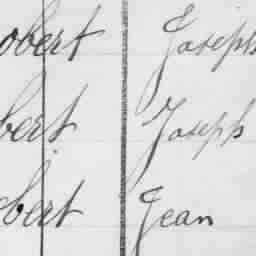 obert Joseph
bert Joseph
obert Jean